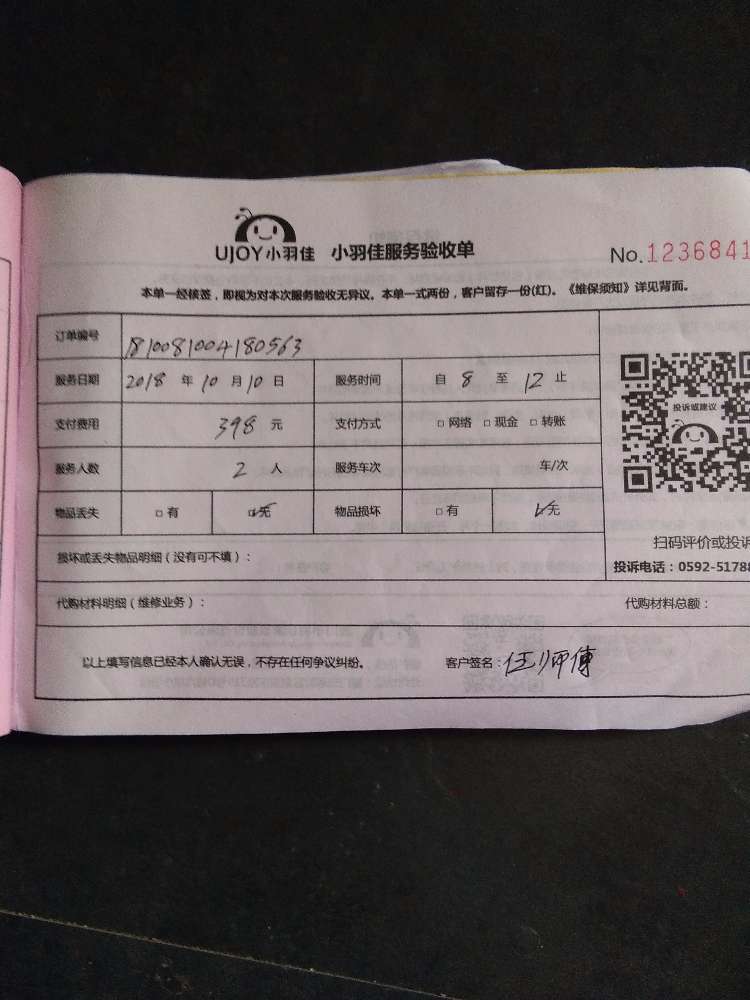 UJOY小羽佳 小羽佳服务验收单 No.1236841
本单一经核签，即视为对本次服务验收无异议。本单一式两份，客户留存一份(红)。《维保须知》详见背面。
订单编号 1810081004180563
服务日期 2018 年 10 月 10 日 服务时间 自 8 至 12 止
投诉或建议
支付费用 398 元 支付方式 □ 网络 □ 现金 □ 转账
服务人数 2 人 服务车次 车/次
物品丢失 □ 有 ☑ 无 物品损坏 □ 有 ☑ 无
扫码评价或投诉
损坏或丢失物品明细（没有可不填）：
投诉电话：0592-51788
代购材料明细（维修业务）： 代购材料总额：
以上填写信息已经本人确认无误，不存在任何争议纠纷。 客户签名：伍师傅